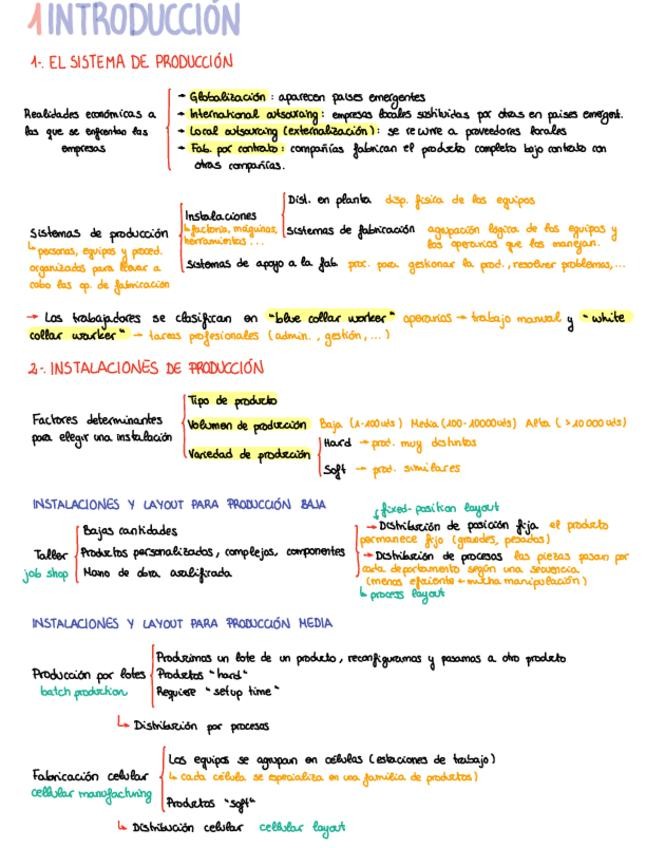 1 INTRODUCCIÓN
1-. EL SISTEMA DE PRODUCCIÓN
Realidades económicas a
las que se enfrentan las
empresas
→ Globalización : aparecen países emergentes
→ International outsourcing : empresas locales sustituidas por otras en países emergent.
→ Local outsourcing (externalización) : se recurre a proveedores locales
→ Fab. por contrato : compañías fabrican el producto completo bajo contrato con
otras compañías.
Sistemas de producción
↳ personas, equipos y proced.
organizados para llevar a
cabo las op. de fabricación
Instalaciones
↳ factoría, máquinas,
herramientas...
Dist. en planta disp. física de los equipos
Sistemas de fabricación agrupación lógica de los equipos y
los operarios que los manejan.
Sistemas de apoyo a la fab. proc. para gestionar la prod., resolver problemas,...
→ Los trabajadores se clasifican en "blue collar worker" operarios → trabajo manual y "white
collar worker" → tareas profesionales (admin., gestión,...)
2-. INSTALACIONES DE PRODUCCIÓN
Factores determinantes
para elegir una instalación
Tipo de producto
Volumen de producción Baja (1-100 uds) Media (100-10000 uds) Alta (>10 000 uds)
Variedad de producción
Hard → prod. muy distintos
Soft → prod. similares
INSTALACIONES Y LAYOUT PARA PRODUCCIÓN BAJA
Taller
job shop
Bajas cantidades
Productos personalizados, complejos, componentes
Mano de obra cualificada
fixed-position layout
→ Distribución de posición fija el producto
permanece fijo (grandes, pesados)
→ Distribución de procesos las piezas pasan por
cada departamento según una secuencia
(menos eficiente ← mucha manipulación)
↳ process layout
INSTALACIONES Y LAYOUT PARA PRODUCCIÓN MEDIA
Producción por lotes
batch production
Producimos un lote de un producto, reconfiguramos y pasamos a otro producto
Productos "hard"
Requiere "setup time"
↳ Distribución por procesos
Fabricación celular
cellular manufacturing
Los equipos se agrupan en células (estaciones de trabajo)
↳ cada célula se especializa en una familia de productos)
Productos "soft"
↳ Distribución celular cellular layout